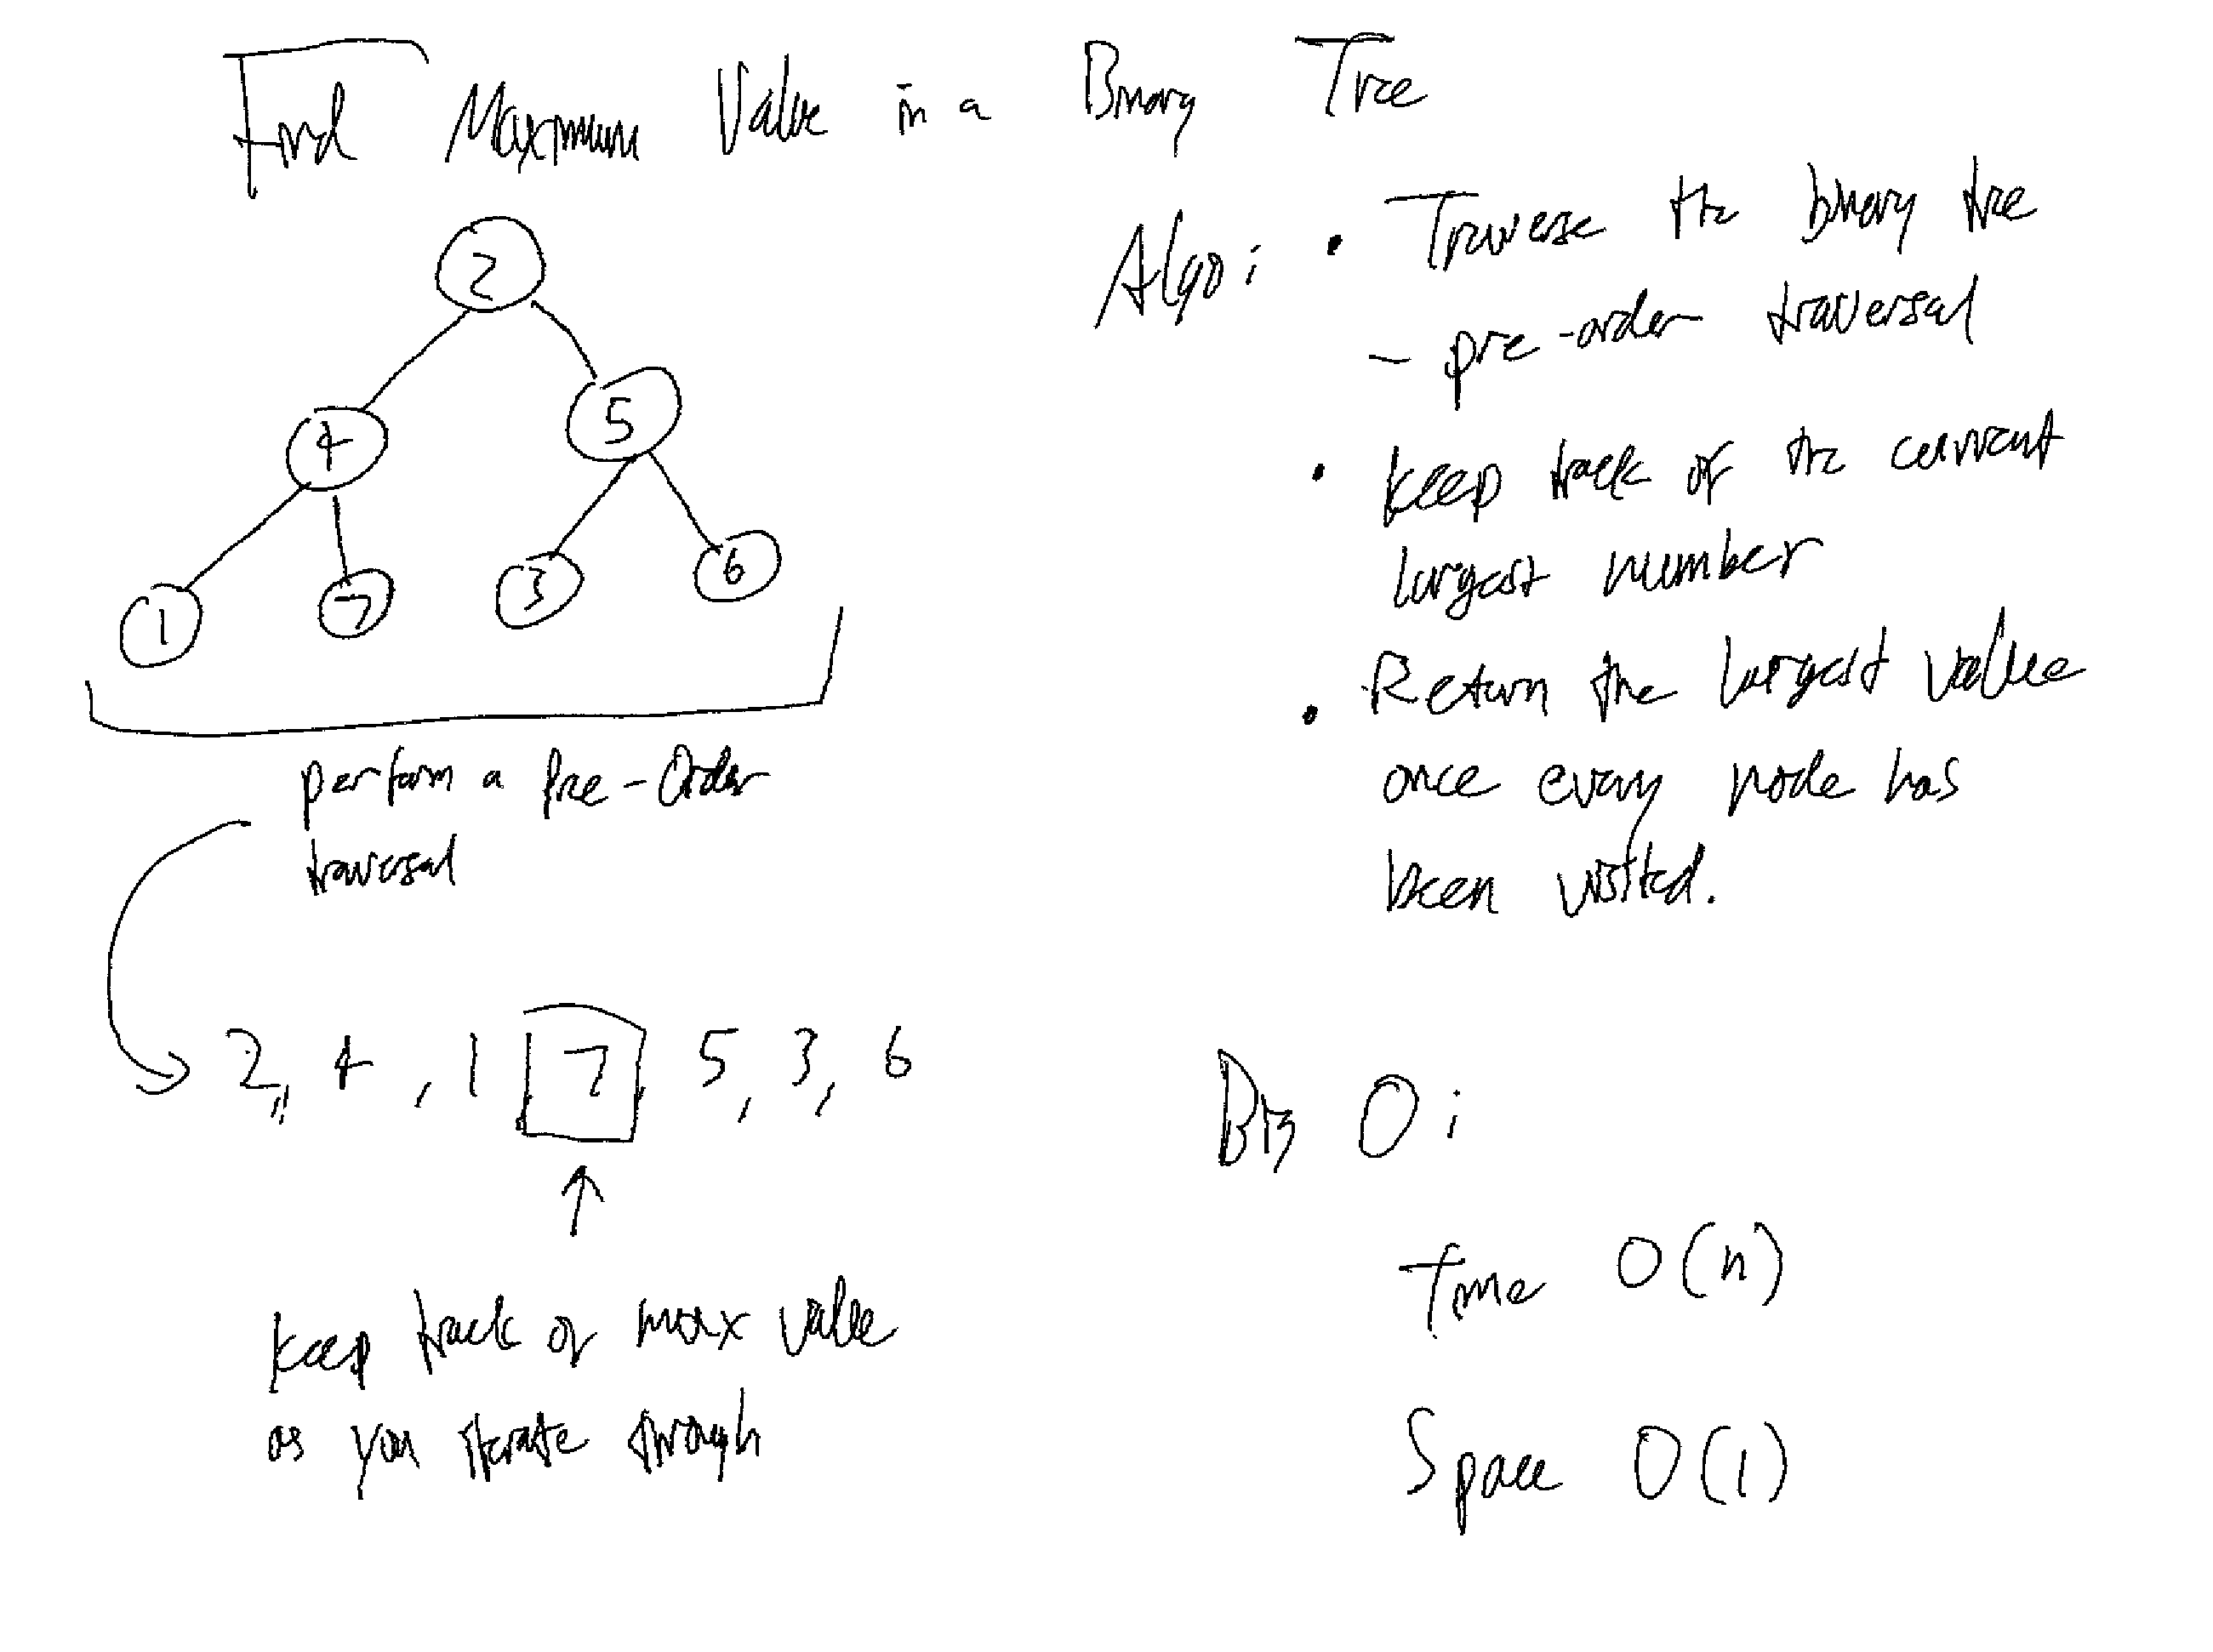 Find Maximum Value in a Binary Tree
2
4
5
1
7
3
6
perform a Pre-Order
traversal
2, 4, 1, 7, 5, 3, 6
keep track of max value
as you iterate through
Algo:
• Traverse the binary tree
- pre-order traversal
• keep track of the current
largest number
• Return the largest value
once every node has
been visited.
Big O:
Time O(n)
Space O(1)